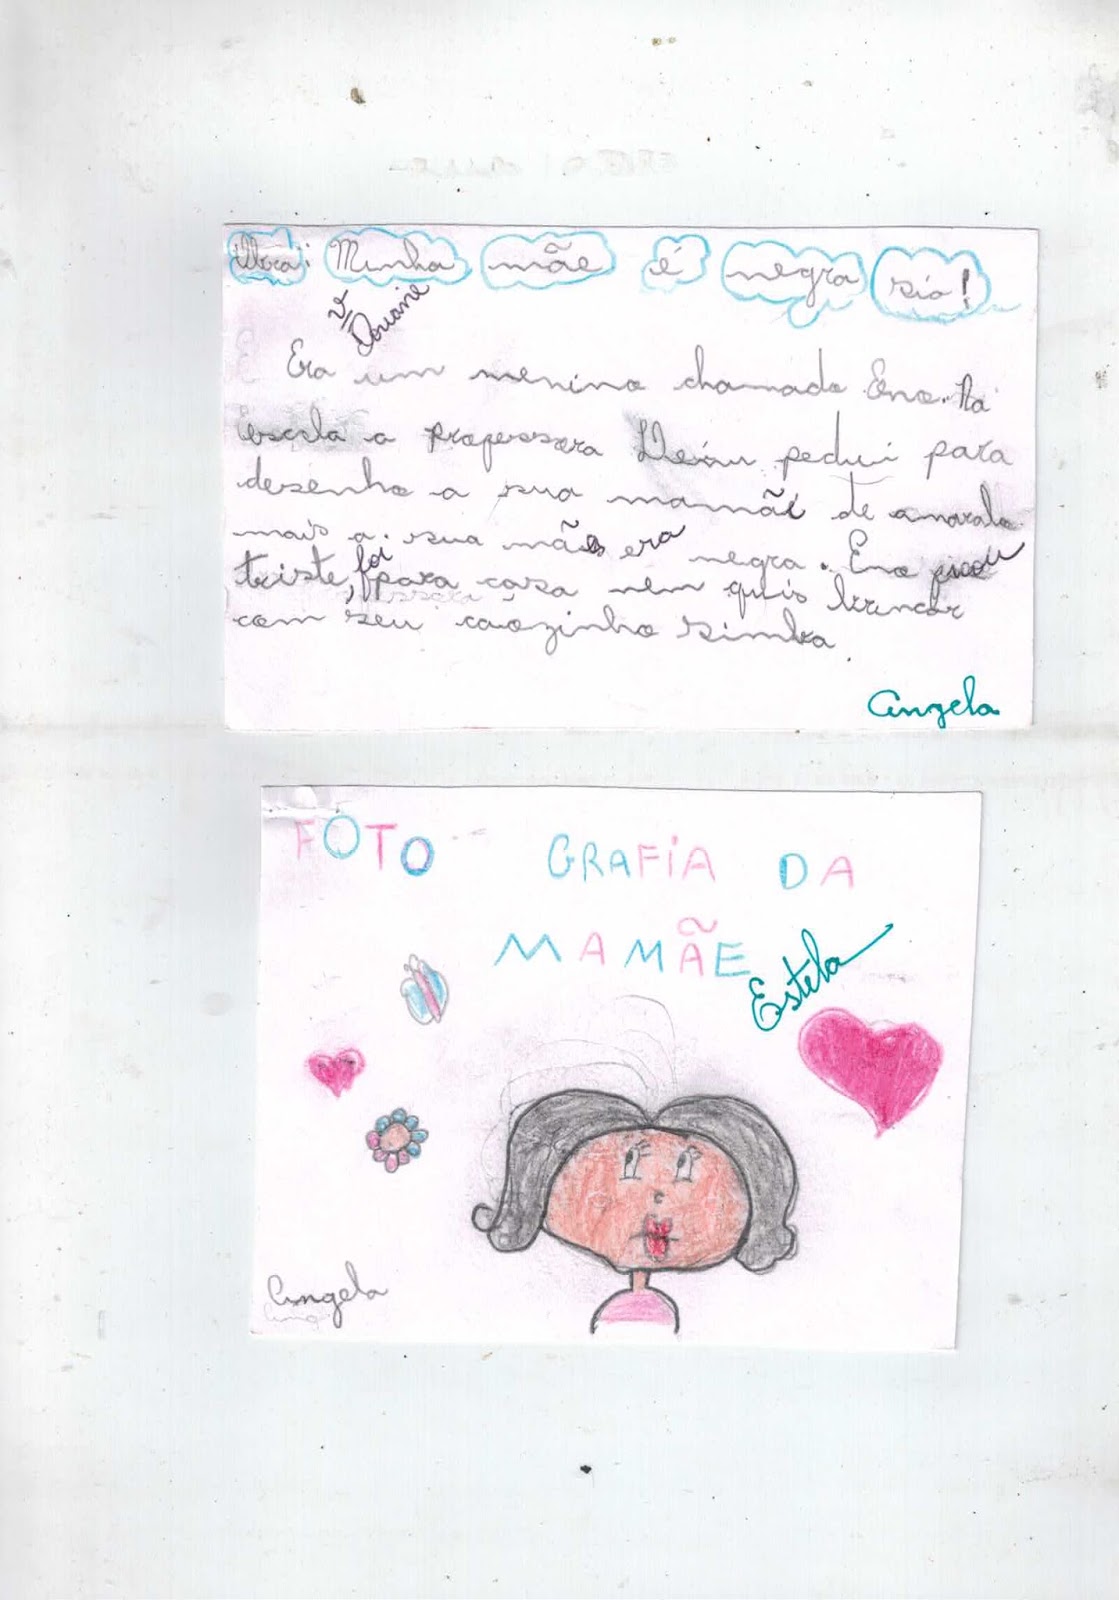 Obra: Minha mãe é negra sio!
v Dovanie
Era um menino chamado Eno. Na
escola a professora pedui para
desenho a sua mamãe de amaralo
mais a sua mães era negra. Eno ficou
triste, foi para casa nem quis brincar
com seu caozinho simba.
Angela
FOTO GRAFIA DA
MAMÃE
Estela
Angela